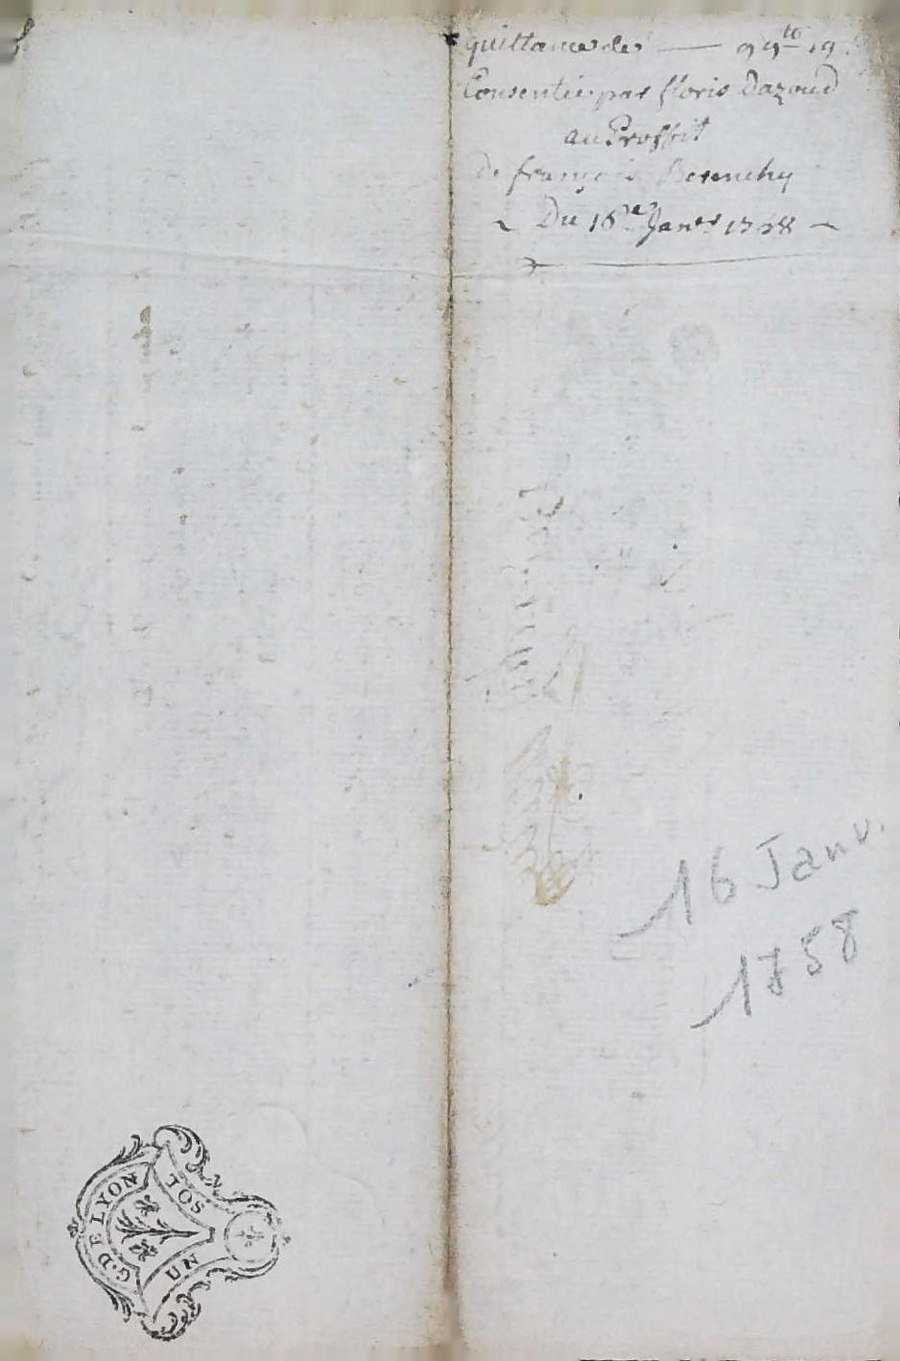 quittance de — 99ᵗᵗ 19ˢ
Consentie par floris Dazoud
au Proffit
de françois
Du 16ᵉ Janᵉʳ 1758
16 Janv.
1758
G. DE LYON
UN SOL